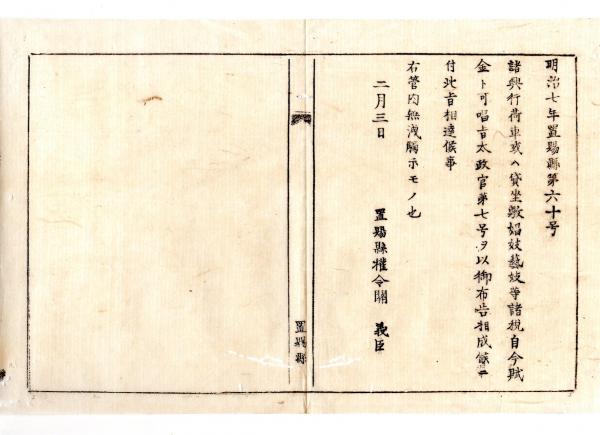 明治七年置賜縣第六十号
諸興行荷車或ヘ貸坐敷娼妓藝妓等諸税自今賦
金ト可唱旨太政官第七号ヲ以御布告相成候ニ
付此旨相達候事
右管内無洩觸示モノ也
二月三日
置賜縣権令關 義臣
置賜縣